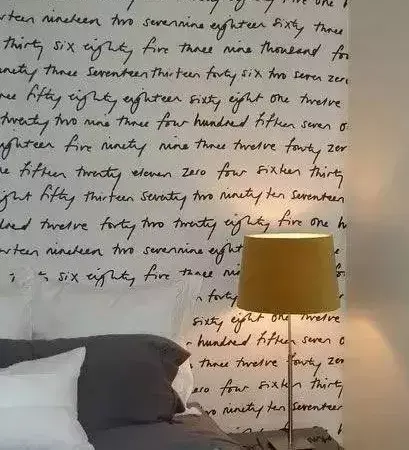 eighty five one h
rteen nineteen two sevennine eighteen sixty three
thirty six eighty five three nine thousand fo
ninety three seventeen thirteen forty six two seven zero
nee fifty eighty eighteen sixty eight one twelve
twenty two nine three four hundred fifteen seven o
ighteen five ninety nine three twelve forty zer
e fifteen twenty eleven zero four sixteen thirty
ight fifty thirteen seventy two ninety ten seventeen
dred twelve forty two twenty eighty five one h
rteen nineteen two sevennine eighteen sixty three
six eighty five three ni
forty
sixty eight one twelve
hundred fifteen seven o
three twelve forty zer
zero four sixteen thirty
two ninety ten seventeen